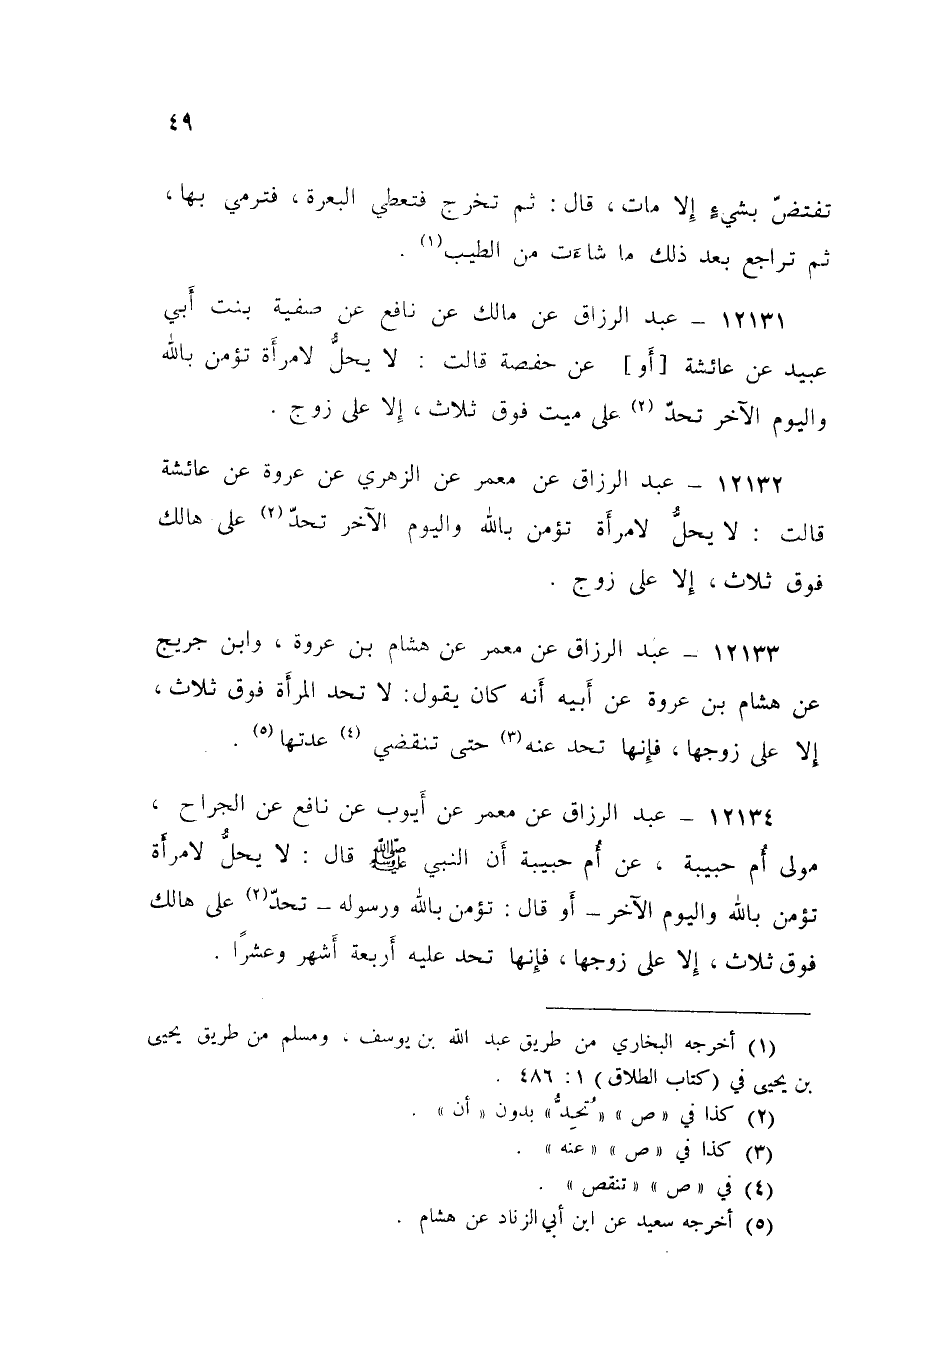 ٤٩
تفتضّ بشيءٍ إلا مات ، قال : ثم تخرج فتعطي البعرة ، فترمي بها ،
ثم تراجع بعد ذلك ما شاءت من الطيب(١) .
١٢١٣١ – عبد الرزاق عن مالك عن نافع عن صفية بنت أَبي
عبيد عن عائشة [أَو] عن حفصة قالت : لا يحلُّ لامرأَة تؤمن بالله
واليوم الآخر تحدّ (٢) على ميت فوق ثلاث ، إلا على زوج .
١٢١٣٢ – عبد الرزاق عن معمر عن الزهري عن عروة عن عائشة
قالت : لا يحلُّ لامرأَة تؤمن بالله واليوم الآخر تحدّ(٢) على هالك
فوق ثلاث ، إلا على زوج .
١٢١٣٣ – عبد الرزاق عن معمر عن هشام بن عروة ، وابن جريج
عن هشام بن عروة عن أَبيه أَنه كان يقول : لا تحد المرأَة فوق ثلاث ،
إلا على زوجها ، فإنها تحد عنه(٣) حتى تنقضي (٤) عدتها(٥) .
١٢١٣٤ – عبد الرزاق عن معمر عن أَيوب عن نافع عن الجراح ،
مولى أُم حبيبة ، عن أُم حبيبة أَن النبي ﷺ قال : لا يحلُّ لامرأَة
تؤمن بالله واليوم الآخر – أَو قال : تؤمن بالله ورسوله – تحدّ(٢) على هالك
فوق ثلاث ، إلا على زوجها ، فإنها تحد عليه أَربعة أَشهر وعشرًا .
(١) أخرجه البخاري من طريق عبد الله بن يوسف ، ومسلم من طريق يحيى
بن يحيى في (كتاب الطلاق) ١ : ٤٨٦ .
(٢) كذا في « ص » «تُحِدُّ» بدون « أن » .
(٣) كذا في « ص » « عنه » .
(٤) في « ص » « تنقص » .
(٥) أخرجه سعيد عن ابن أبي الزناد عن هشام .